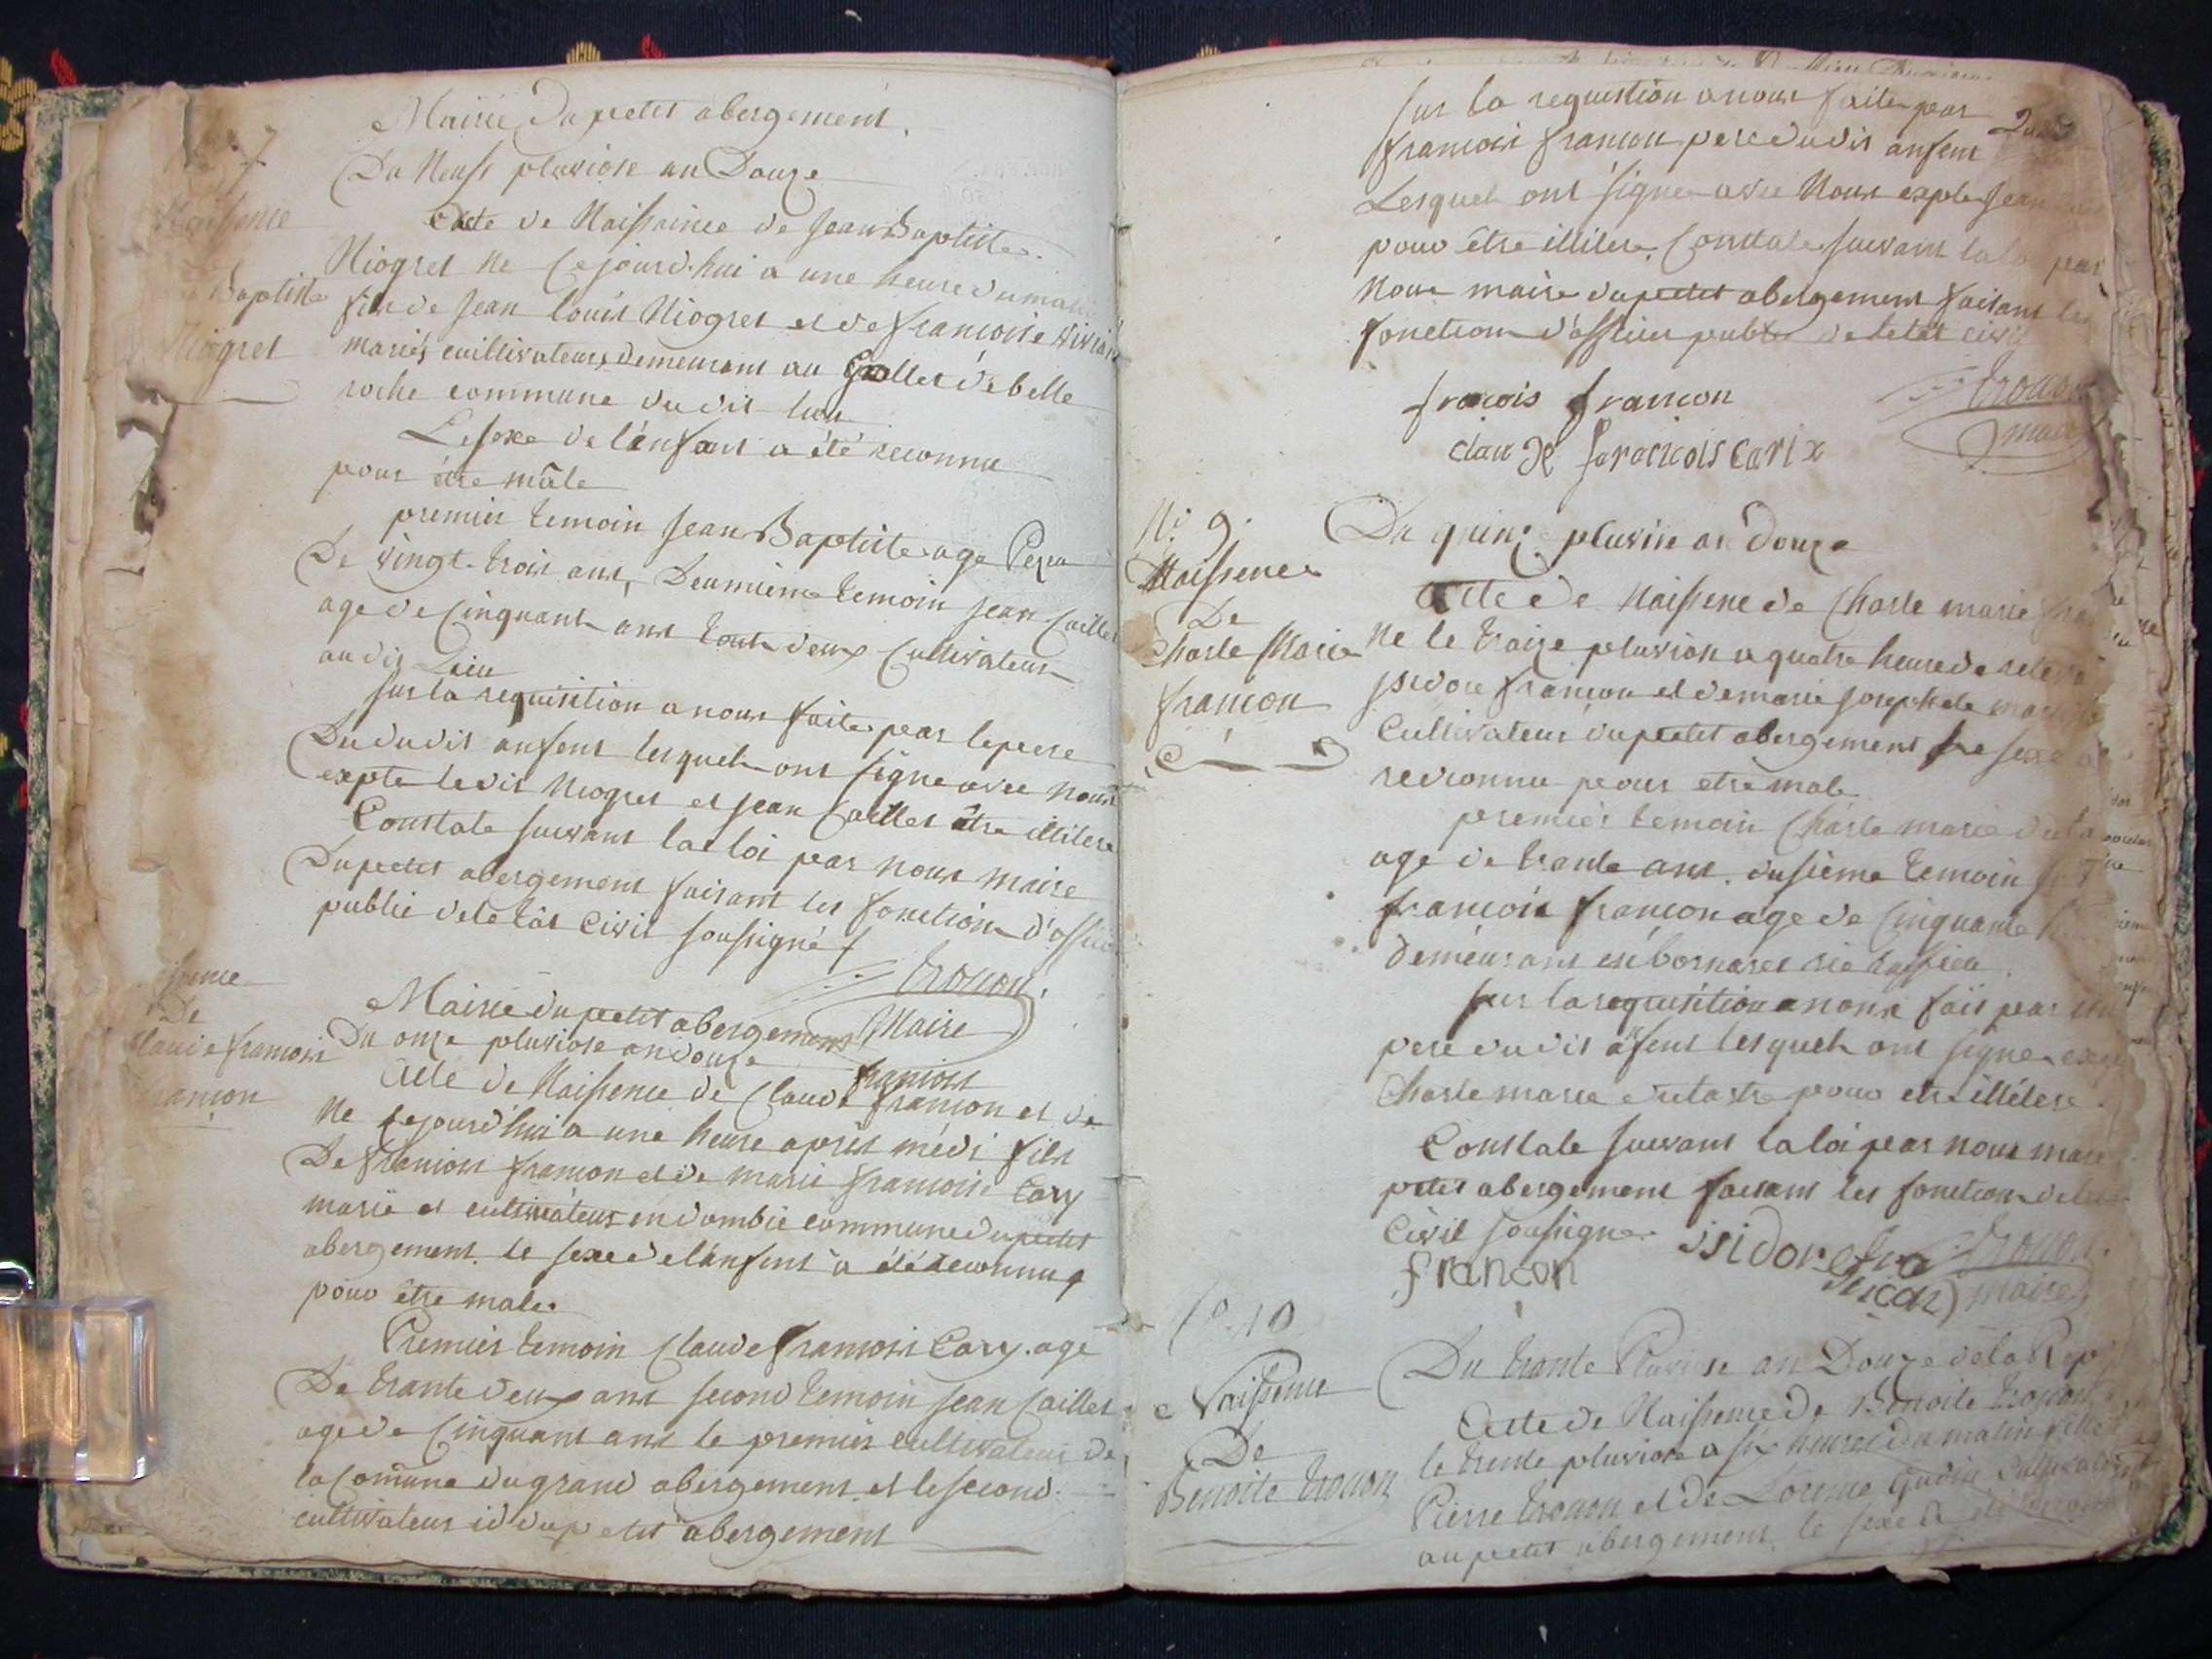 Mairie Du petit abergement.
7
Du Neuf pluviose an Douze
Naissence
Acte de Naissaince de jean Baptiste
Niogret ne Cejourd'hui a une heure du matin
Baptiste
fils de jean louis Niogret et de francoise
Niogret
mariés cuillivateurs demeurant au Gollet de belle
roche commune du dit lieu
Le sexe de l'enfant a été reconnu
pour être mâle
premier temoin jean Baptiste age
De vingt trois ans, Deumieme temoin jean Caillet
age de Cinquant ans tout deux Cultivateur
au dit Lieu
sur la requisition a nous faite par le pere
Du du dit anfent lesquels ont signe avec nous
expte le dit Niogret et jean Caillet être illitere
Constate suivant la loi par nous maire
Du petit abergement faisant les fonction d'offici
public de letât Civil soussigné
trocon
Maire
Mairie du petit abergement
De
Du onze pluviose an douze
Claude francois
francois
Acte de Naissence de Claude francon et de
francon
Ne Cejourd'hui a une heure après médi fils
De francois francon et de marie francoise Cary
marié et cultivateur en dombie commune du petit
abergement. le sexe de lénfent a été reconnu
pour etre male.
Premier temoin Claude francois Cary. age
De trante deux ans second temoin jean Caillet
age de Cinquant ans le premier cultivateur de
la Comune du grand abergement et le second
cultivateur id du petit abergement
sur la requistion a nous faite par
francois francon pere du dit anfent
Lesquel ont signe avec Nous expte jean
pour être illitere. Constate suivant la loi par
Nous maire du petit abergement faisant les
fonction d'officier public de letât civil
francois francon
trocon
maire
claude francois carix
N: 9.
Du quinze pluvise an douze
Naissence
Acte de Naissene de Charle marie
De
Charle Marie
Ne le traize pluviose a quatre heure de
francon
isidore francon et de marie josephete
Cultivateur du petit abergement le sexe a
reconnu pour etre male
premier temoin Charle marie
age de trante ans. dusieme temoin
francois francon age de Cinquante
demeurant en bornarel
sur la requisition a nous fait par
pere du dit afent lesquels ont signe
Charle marie pour etre illitere.
Constate suivant la loi par nous maire
petit abergement faisant les fonction de
Civil soussigne
isidore
francon
trocon
maire
10
Du trante Pluviose an Douze de la Rep
Naissence
Acte de Naissence de Benoite trocon
De
le trente pluviose a six heures du matin fille
Benoite trocon
Pierre trocon et de
au petit abergement le sexe a été